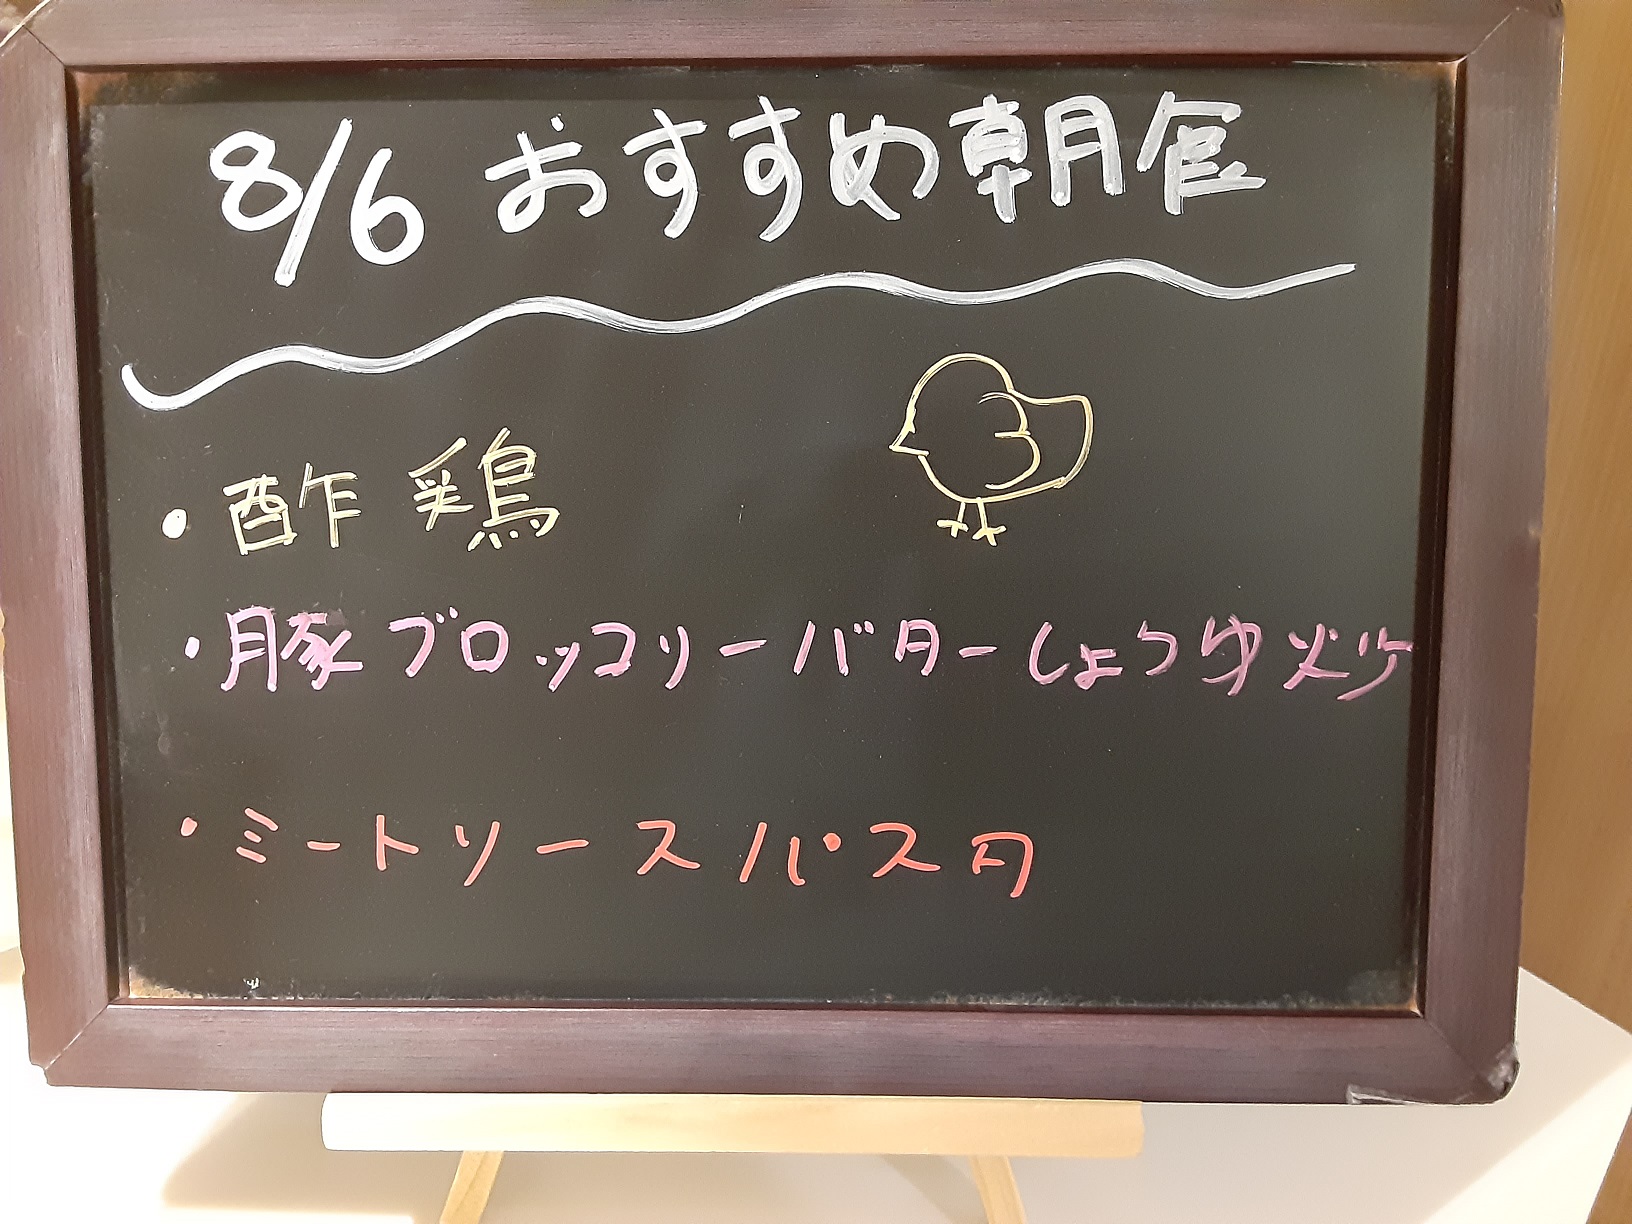 8/6 おすすめ朝食
・酢鶏
・豚ブロッコリーバターしょうゆ炒
・ミートソースパスタ